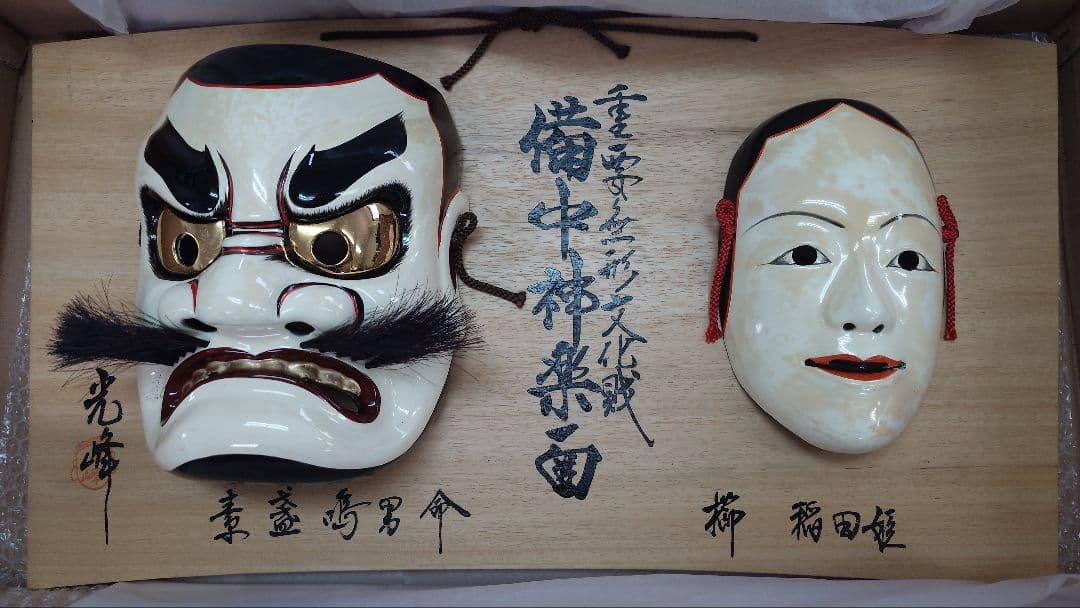 重要無形文化財
備中神楽面
櫛 稲田姫
素盞鳴男命
光峰